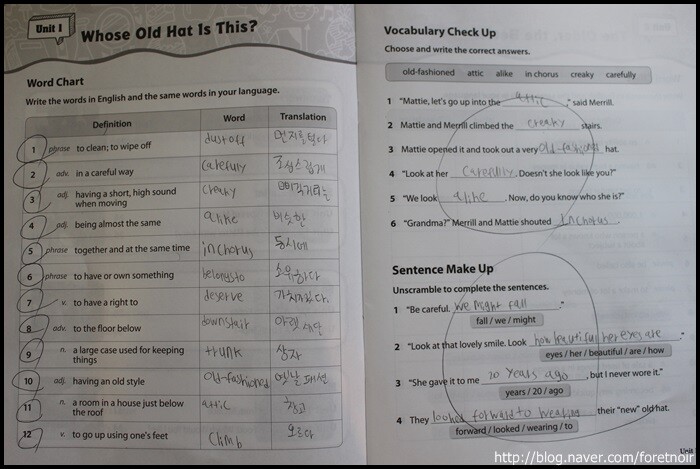 Unit 1
Whose Old Hat Is This?
Word Chart
Write the words in English and the same words in your language.
Definition Word Translation
1 phrase to clean; to wipe off dust off 먼지를 털다
2 adv. in a careful way carefully 조심스럽게
3 adj. having a short, high sound when moving creaky 삐걱거리는
4 adj. being almost the same alike 비슷한
5 phrase together and at the same time in chorus 동시에
6 phrase to have or own something belongs to 소유하다
7 v. to have a right to deserve
8 adv. to the floor below downstair
9 n. a large case used for keeping things trunk 상자
10 adj. having an old style old-fashioned 옛날 패션
11 n. a room in a house just below the roof attic 창고
12 v. to go up using one's feet climb 오르다
Vocabulary Check Up
Choose and write the correct answers.
old-fashioned attic alike in chorus creaky carefully
1 "Mattie, let's go up into the attic," said Merrill.
2 Mattie and Merrill climbed the creaky stairs.
3 Mattie opened it and took out a very old-fashions hat.
4 "Look at her carefully. Doesn't she look like you?"
5 "We look alike. Now, do you know who she is?"
6 "Grandma?" Merrill and Mattie shouted in chorus.
Sentence Make Up
Unscramble to complete the sentences.
1 "Be careful. we might fall."
fall / we / might
2 "Look at that lovely smile. Look how beautiful her eyes are."
eyes / her / beautiful / are / how
3 "She gave it to me 20 years ago, but I never wore it."
years / 20 / ago
4 They looked forward to wearing their "new" old hat.
forward / looked / wearing / to
Unit
http://blog.naver.com/foretnoir